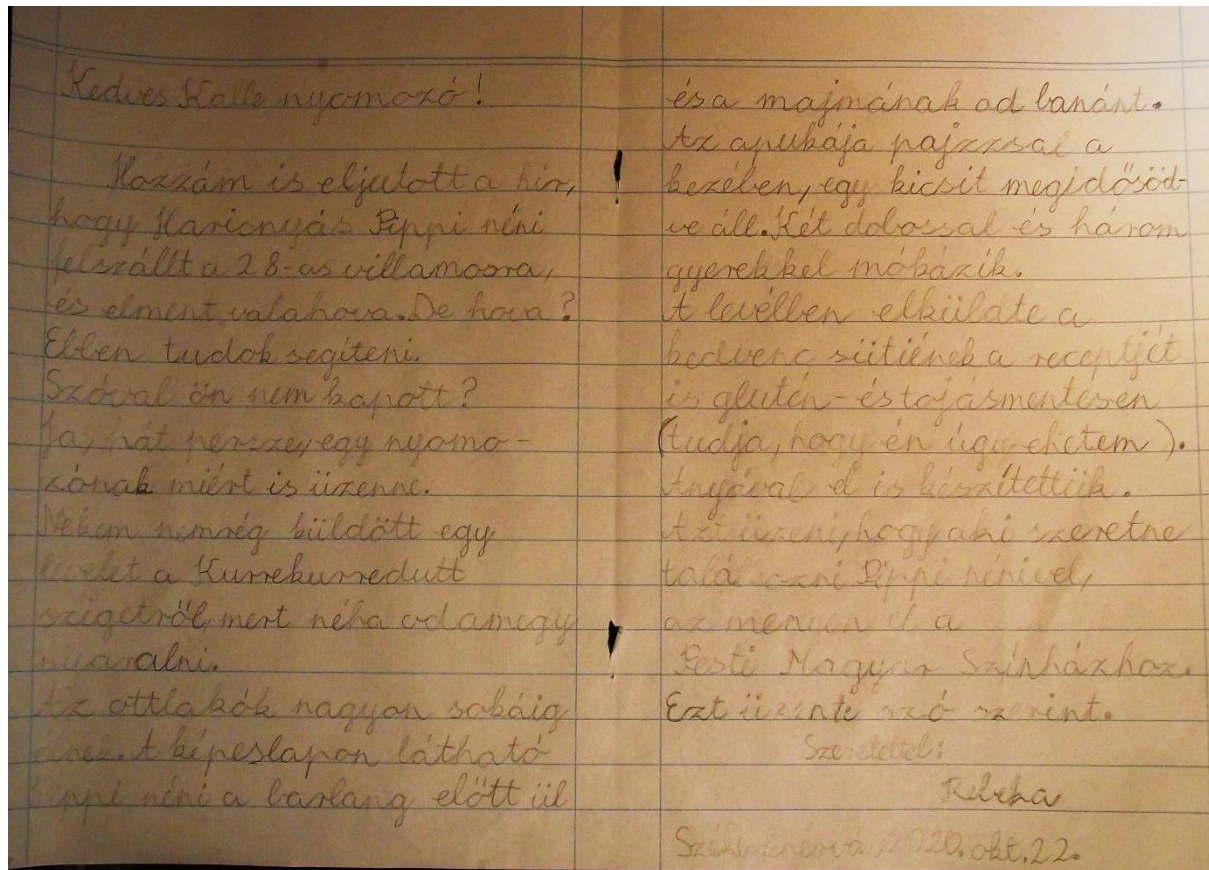 Kedves Kalle nyomozó!
Hozzám is eljutott a hír,
hogy Harisnyás Pippi néni
felszállt a 28-as villamosra,
és elment valahova. De hova?
Ebben tudok segíteni.
Szóval ön nem kapott?
Ja, hát persze, egy nyomo-
zónak miért is üzenne.
Nekem nemrég küldött egy
levelet a Kurrekurredutt
szigetről, mert néha odamegy
nyaralni.
Az ottlakók nagyon sokáig
élnek. A képeslapon látható
Pippi néni a barlang előtt ül
és a majmának ad banánt.
Az apukája pajzzsal a
kezében, egy kicsit megidősöd-
ve áll. Két dobossal és három
gyerekkel mókázik.
A levélben elküldte a
kedvenc sütiének a receptjét
is glutén- és tojásmentesen
(tudja, hogy én úgy ehetem).
Anyával el is készítettük.
Azt üzeni, hogy aki szeretne
találkozni Pippi nénivel,
az menyen el a
Pesti Magyar Színházhoz.
Ezt üzente szó szerint.
Szeretettel:
Rebeka
Székesfehérvár, 2020. okt. 22.